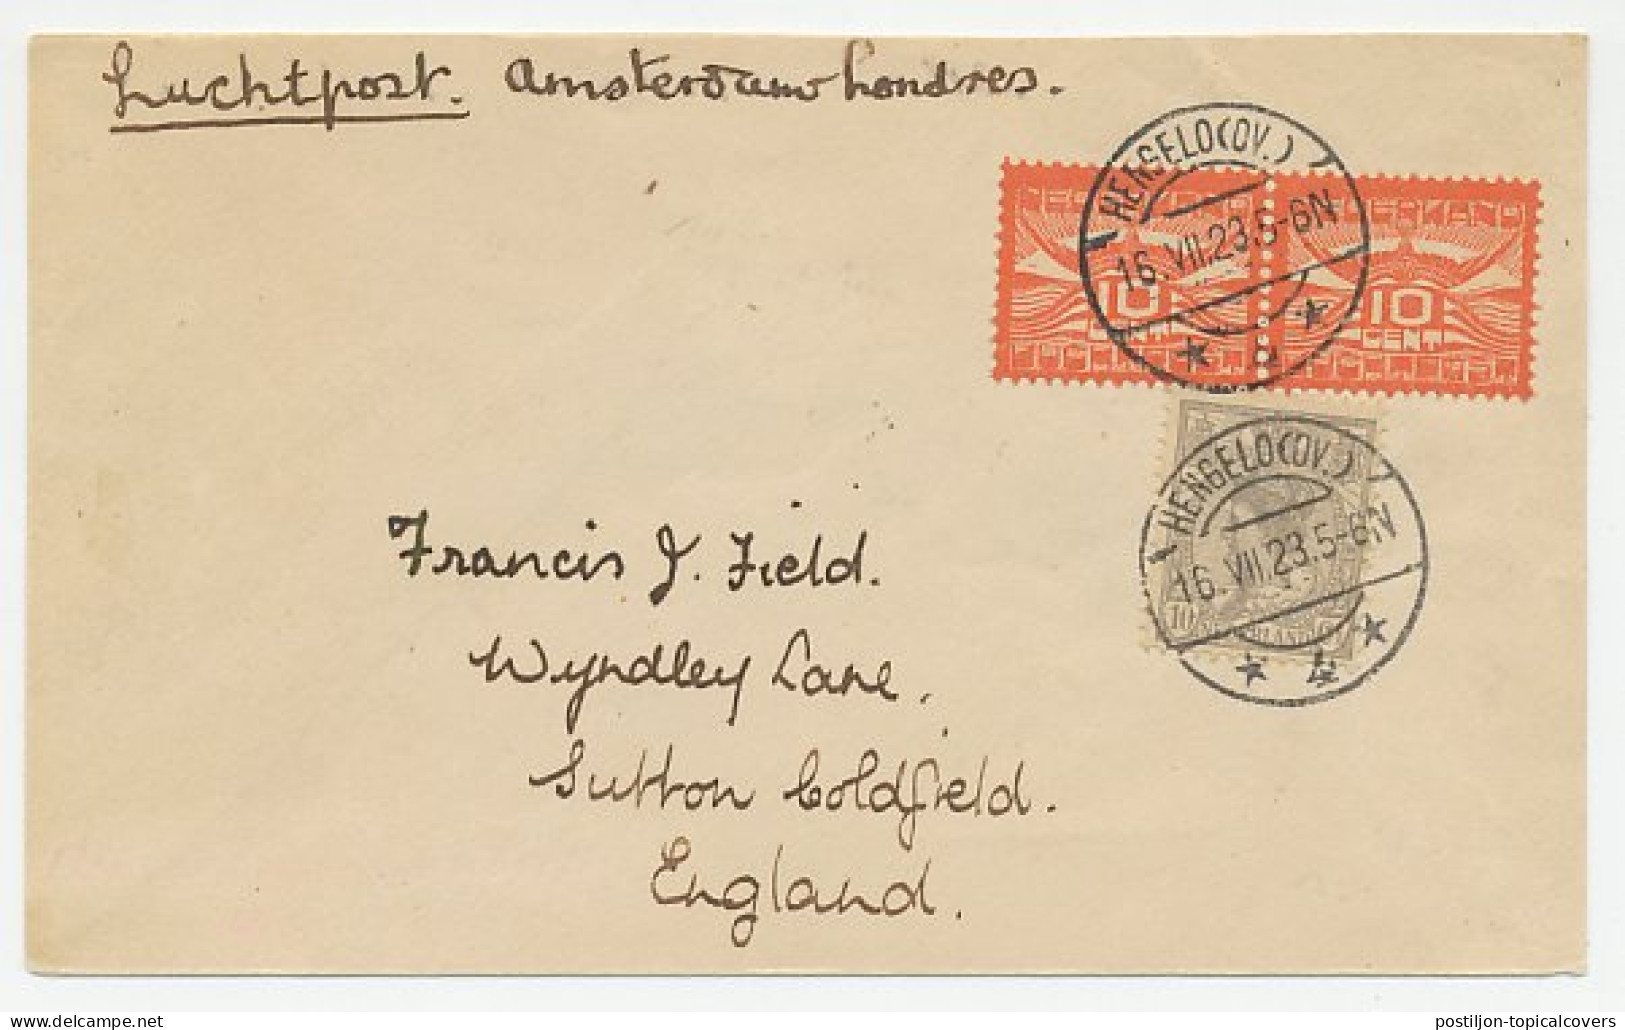 Luchtpost. Amsterdam Londres.
HENGELO(OV.)
16.VII.23.5-6N
4
NEDERLAND
10
CENT
10
CENT
HENGELO(OV.)
16.VII.23.5-6N
4
10
Francis J. Field.
Wyndley Lane,
Sutton Coldfield.
England.
postiljon-topicalcovers